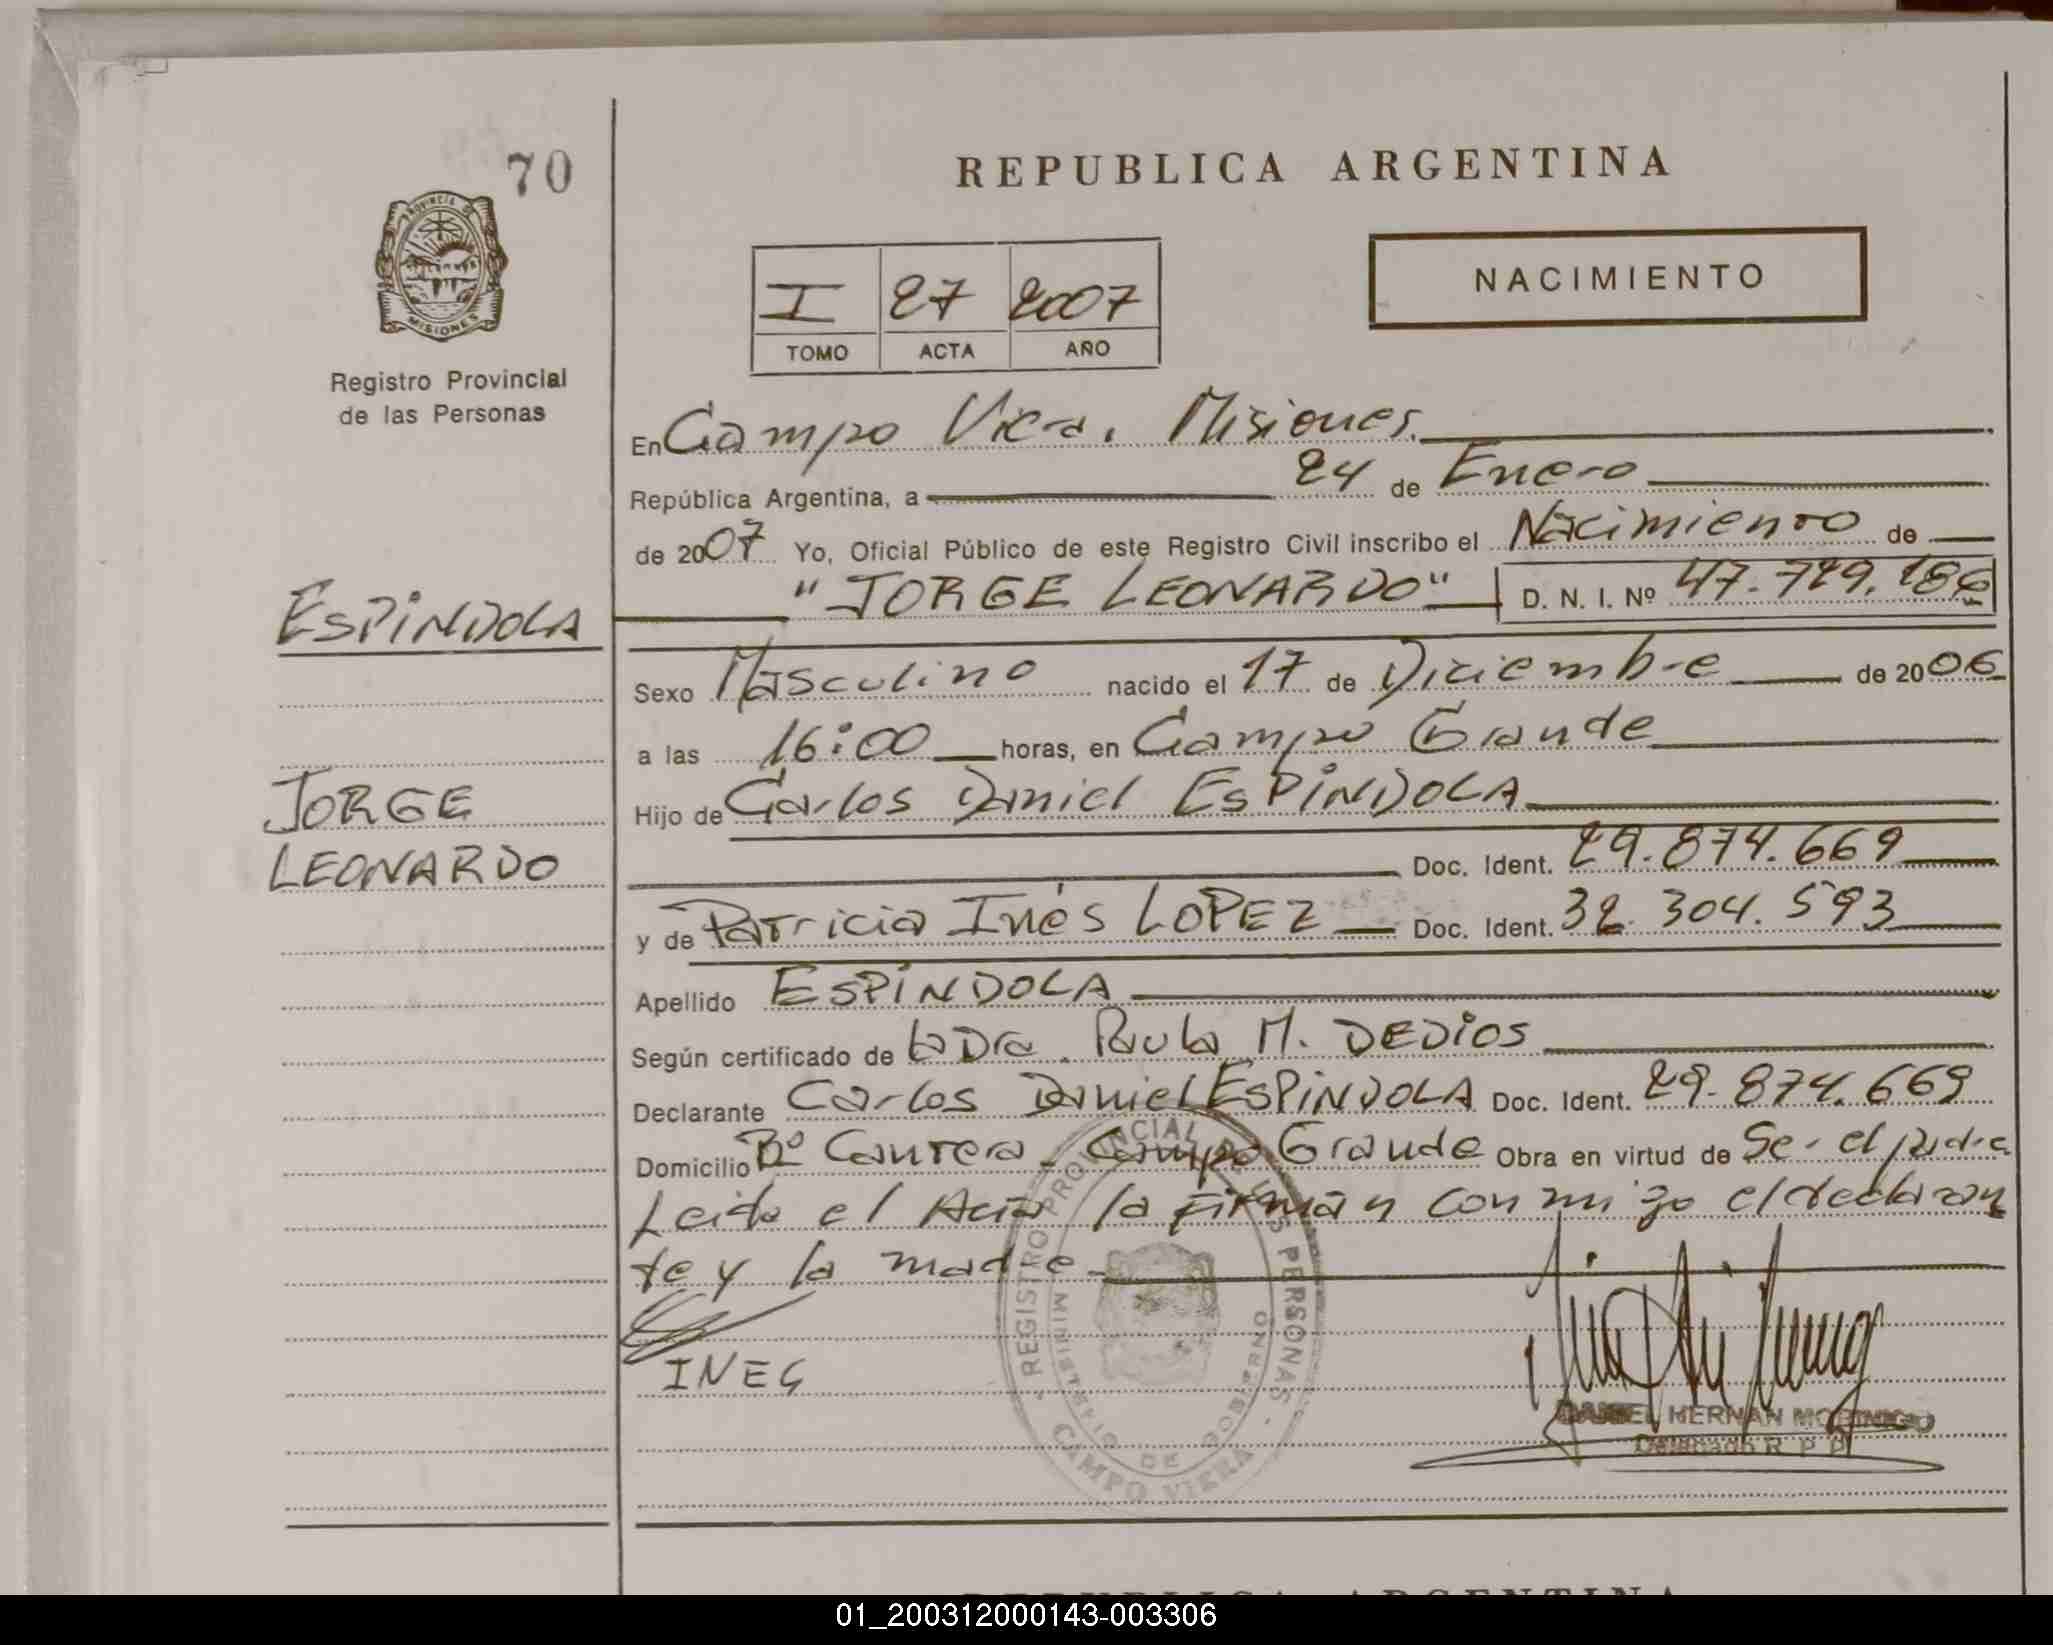 70
REPUBLICA ARGENTINA
PROVINCIA DE
MISIONES
I 27 2007
TOMO ACTA AÑO
NACIMIENTO
Registro Provincial
de las Personas
En Campo Viera. Misiones.
República Argentina, a 24 de Enero
de 2007 Yo, Oficial Público de este Registro Civil inscribo el Nacimiento de
"JORGE LEONARDO" D. N. I. Nº 47.729.186
ESPÍNDOLA
Sexo Masculino nacido el 17 de Diciembre de 2006
a las 16:00 horas, en Campo Grande
JORGE
LEONARDO
Hijo de Carlos Daniel ESPÍNDOLA
Doc. Ident. 29.874.669
y de Patricia Inés LOPEZ Doc. Ident. 32.304.593
Apellido ESPÍNDOLA
Según certificado de la Dra. Paula M. DEDIOS
Declarante Carlos Daniel ESPÍNDOLA Doc. Ident. 29.874.669
Domicilio Bº Cantera - Campo Grande Obra en virtud de Ser el padre
Leida el Acta la firman conmigo el declaran
te y la madre
INES
REGISTRO PROVINCIAL DE LAS PERSONAS
MINISTERIO DE GOBIERNO
CAMPO VIERA
DANIEL HERNAN MORINIGO
Delegado R. P. P.
REPUBLICA ARGENTINA
01_200312000143-003306